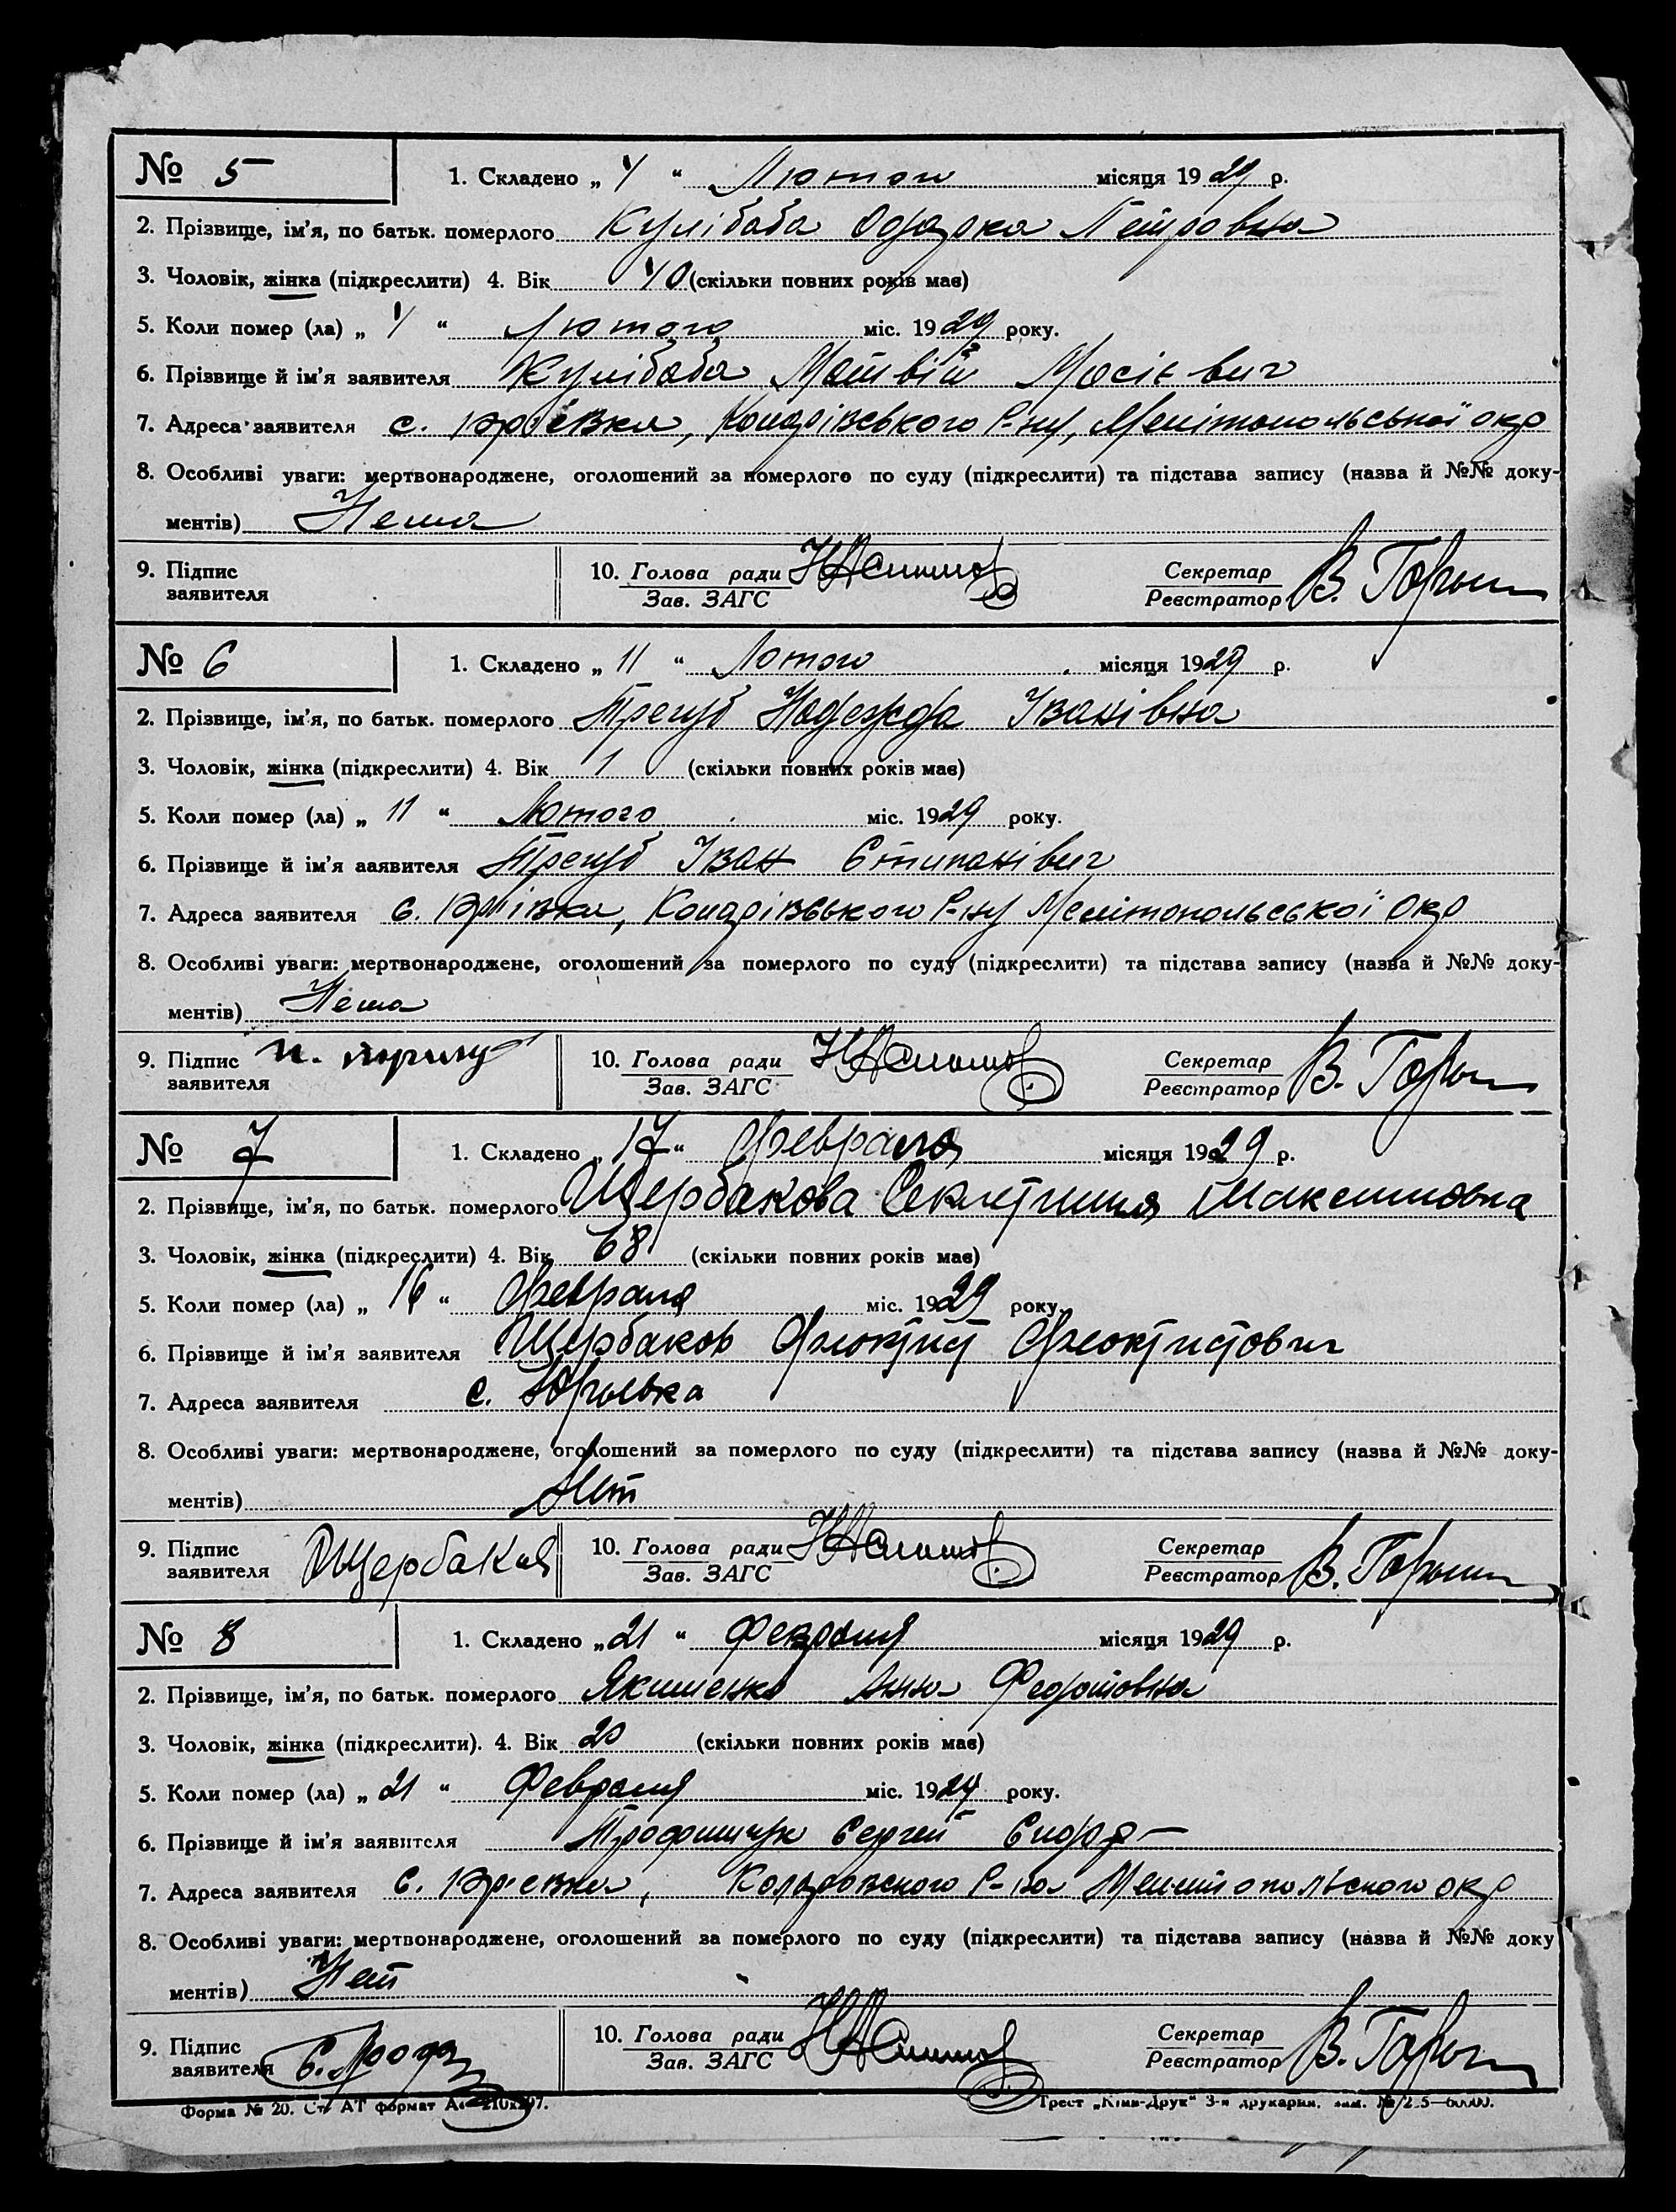 № 5
1. Складено „ 4 “ Лютого місяця 1929 р.
2. Прізвище, ім'я, по батьк. померлого Кулібаба Одарка Петровна
3. Чоловік, жінка (підкреслити) 4. Вік 40 (скільки повних років має)
5. Коли помер (ла) „ 4 “ Лютого міс. 1929 року.
6. Прізвище й ім'я заявителя Кулібаба Матвій Мосієвич
7. Адреса заявителя с. Юр'ївка, Р-ну, Мелітопольської окр
8. Особливі уваги: мертвонароджене, оголошений за померлого по суду (підкреслити) та підстава запису (назва й №№ доку-
ментів) Нема
9. Підпис
заявителя
10. Голова ради
Зав. ЗАГС
Секретар
Реєстратор В.
№ 6
1. Складено „ 11 “ Лютого місяця 1929 р.
2. Прізвище, ім'я, по батьк. померлого Трегуб Надежда Іванівна
3. Чоловік, жінка (підкреслити) 4. Вік 1 (скільки повних років має)
5. Коли помер (ла) „ 11 “ Лютого міс. 1929 року.
6. Прізвище й ім'я заявителя Трегуб Іван Степанівич
7. Адреса заявителя с. Юр'ївка, Р-ну Мелітопольської окр
8. Особливі уваги: мертвонароджене, оголошений за померлого по суду (підкреслити) та підстава запису (назва й №№ доку-
ментів) Нема
9. Підпис
заявителя
10. Голова ради
Зав. ЗАГС
Секретар
Реєстратор В.
№ 7
1. Складено „ 17 “ Февраля місяця 1929 р.
2. Прізвище, ім'я, по батьк. померлого Щербакова Максимовна
3. Чоловік, жінка (підкреслити) 4. Вік 68 (скільки повних років має)
5. Коли помер (ла) „ 16 “ Февраля міс. 1929 року.
6. Прізвище й ім'я заявителя Щербаков Феоктист Феоктистович
7. Адреса заявителя с. Юрьевка
8. Особливі уваги: мертвонароджене, оголошений за померлого по суду (підкреслити) та підстава запису (назва й №№ доку-
ментів) Нет
9. Підпис
заявителя
10. Голова ради
Зав. ЗАГС
Секретар
Реєстратор В.
№ 8
1. Складено „ 21 “ Февраля місяця 1929 р.
2. Прізвище, ім'я, по батьк. померлого Якименко Анна Федотовна
3. Чоловік, жінка (підкреслити). 4. Вік 20 (скільки повних років має)
5. Коли помер (ла) „ 21 “ Февраля міс. 1929 року.
6. Прізвище й ім'я заявителя Трофимчук Сергей
7. Адреса заявителя с. Юр'евка, Р-на Мелитопольского окр
8. Особливі уваги: мертвонароджене, оголошений за померлого по суду (підкреслити) та підстава запису (назва й №№ доку
ментів) Нет
9. Підпис
заявителя
10. Голова ради
Зав. ЗАГС
Секретар
Реєстратор В.
Форма № 20. формат
Трест „Київ-Друк“ 3-я друкарня.